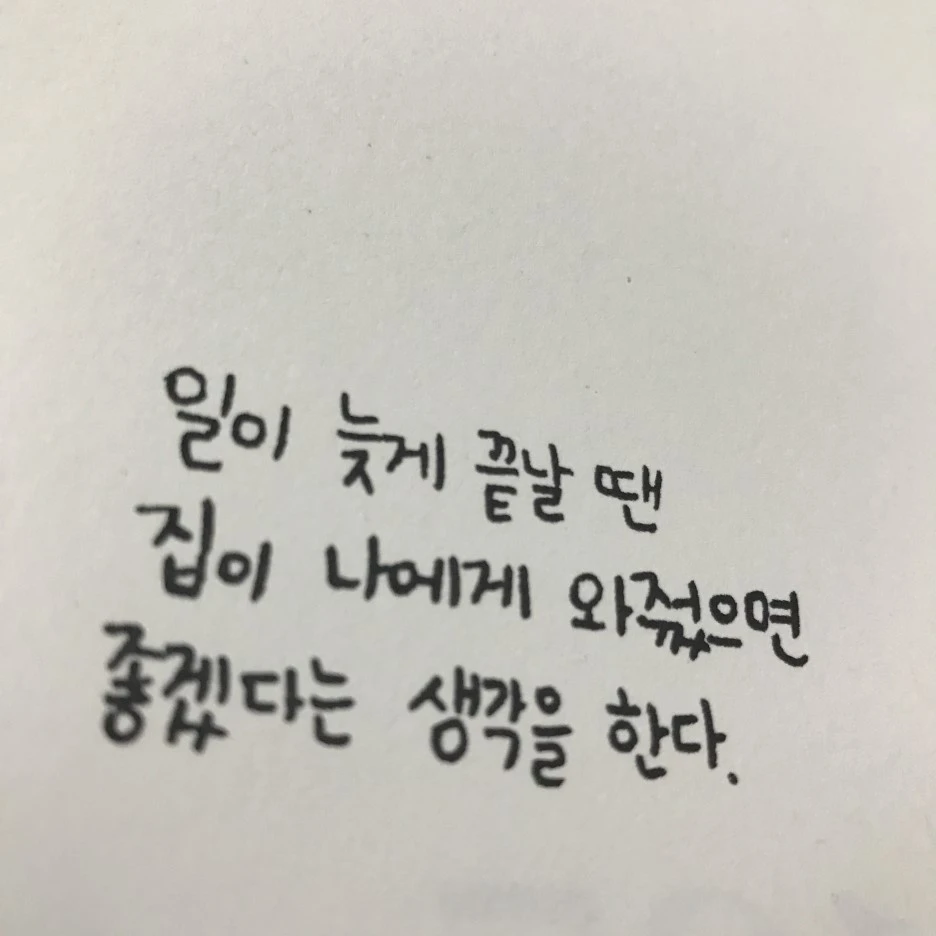 일이 늦게 끝날 땐
집이 나에게 와줬으면
좋겠다는 생각을 한다.